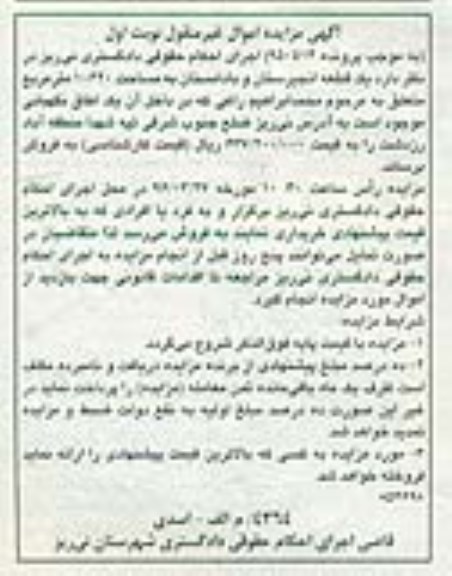 آگهی مزایده اموال غیرمنقول نوبت اول
اجرای احکام حقوقی دادگستری نی‌ریز در
نظر دارد یک قطعه انجیرستان و بادامستان به مساحت مترمربع
متعلق به مرحوم محمدابراهیم که در داخل آن یک اطاق نگهبانی
موجود است به آدرس نی‌ریز ضلع جنوب شرقی تپه شهدا منطقه آباد
زردشت را به قیمت ریال (قیمت کارشناسی) به فروش
برساند.
مزایده رأس ساعت ۱۰:۳۰ مورخه در محل اجرای احکام
حقوقی دادگستری نی‌ریز برگزار و به فرد یا افرادی که به بالاترین
قیمت پیشنهادی خریداری نمایند به فروش می‌رسد لذا متقاضیان در
صورت تمایل می‌توانند پنج روز قبل از انجام مزایده به اجرای احکام
حقوقی دادگستری نی‌ریز مراجعه تا اقدامات قانونی جهت بازدید از
اموال مورد مزایده انجام گیرد.
شرایط مزایده:
۱- مزایده با قیمت پایه فوق‌الذکر شروع می‌گردد.
۲- ده درصد مبلغ پیشنهادی از برنده مزایده دریافت و نامبرده مکلف
است ظرف یک ماه باقی‌مانده ثمن معامله (مزایده) را پرداخت نماید در
غیر این صورت ده درصد مبلغ اولیه به نفع دولت ضبط و مزایده
تجدید خواهد شد.
۳- مورد مزایده به کسی که بالاترین قیمت پیشنهادی را ارائه نماید
فروخته خواهد شد.
۴۳۶۴/ م الف - اسدی
قاضی اجرای احکام حقوقی دادگستری شهرستان نی‌ریز